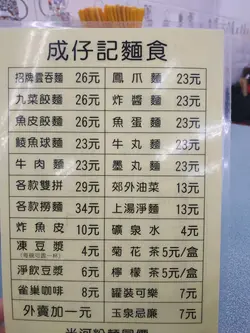 成仔記麵食
招牌雲吞麵 26元 鳳爪麵 23元
九菜餃麵 26元 炸醬麵 23元
魚皮餃麵 26元 魚蛋麵 23元
鯪魚球麵 23元 牛丸麵 23元
牛肉麵 23元 墨丸麵 23元
各款雙拼 29元 郊外油菜 13元
各款撈麵 34元 上湯淨麵 13元
炸魚皮 10元 礦泉水 4元
凍豆漿 4元 菊花茶 5元/盒
(每碗可跟一杯)
淨飲豆漿 6元 檸檬茶 5元/盒
雀巢咖啡 8元 罐裝可樂 7元
外賣加一元 玉泉忌廉 7元
米河粉麵同價